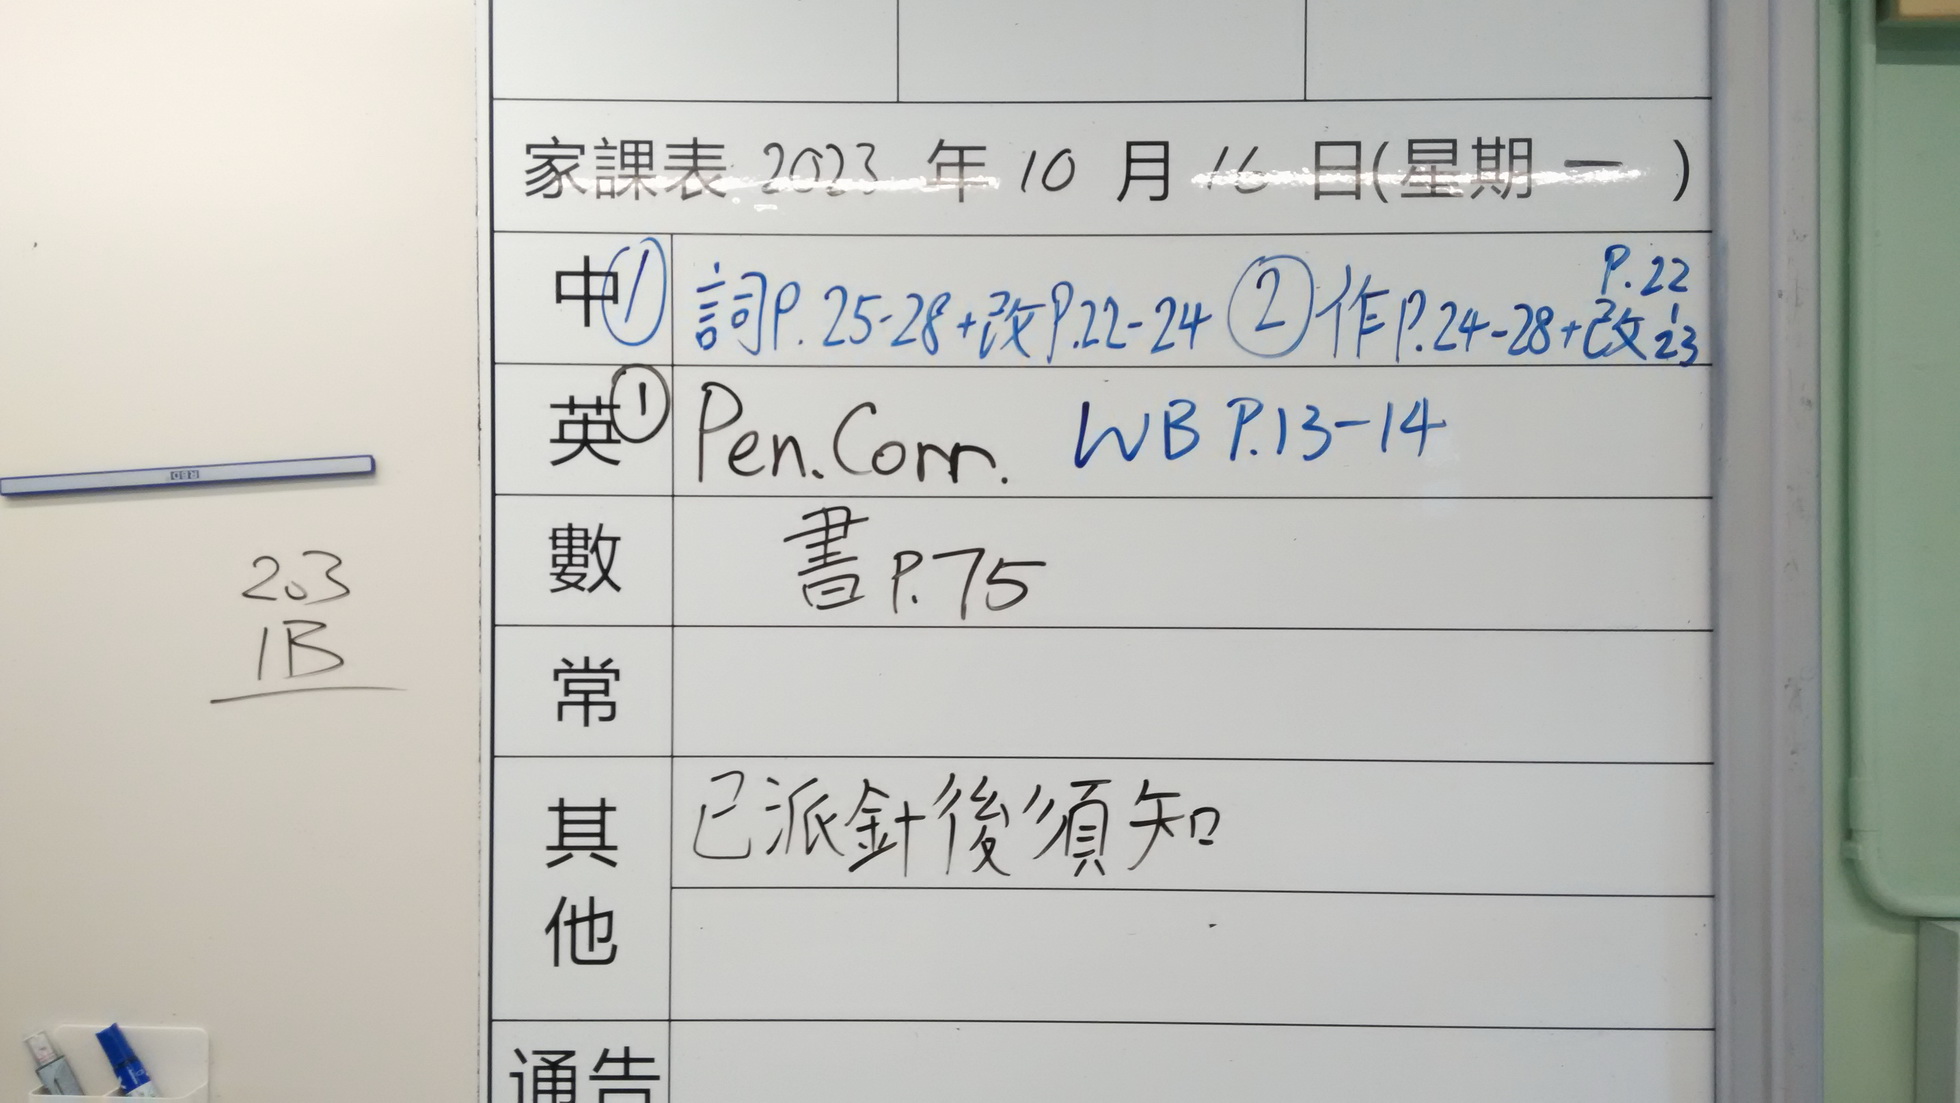 家課表 2023 年 10 月 16 日(星期 一 )
中 ① 詞P.25-28+改P.22-24 ② 作P.24-28+改P.22-23
英 ① Pen.Corr. WB P.13-14
數 書P.75
常
其他 已派針後須知
通告
203
1B